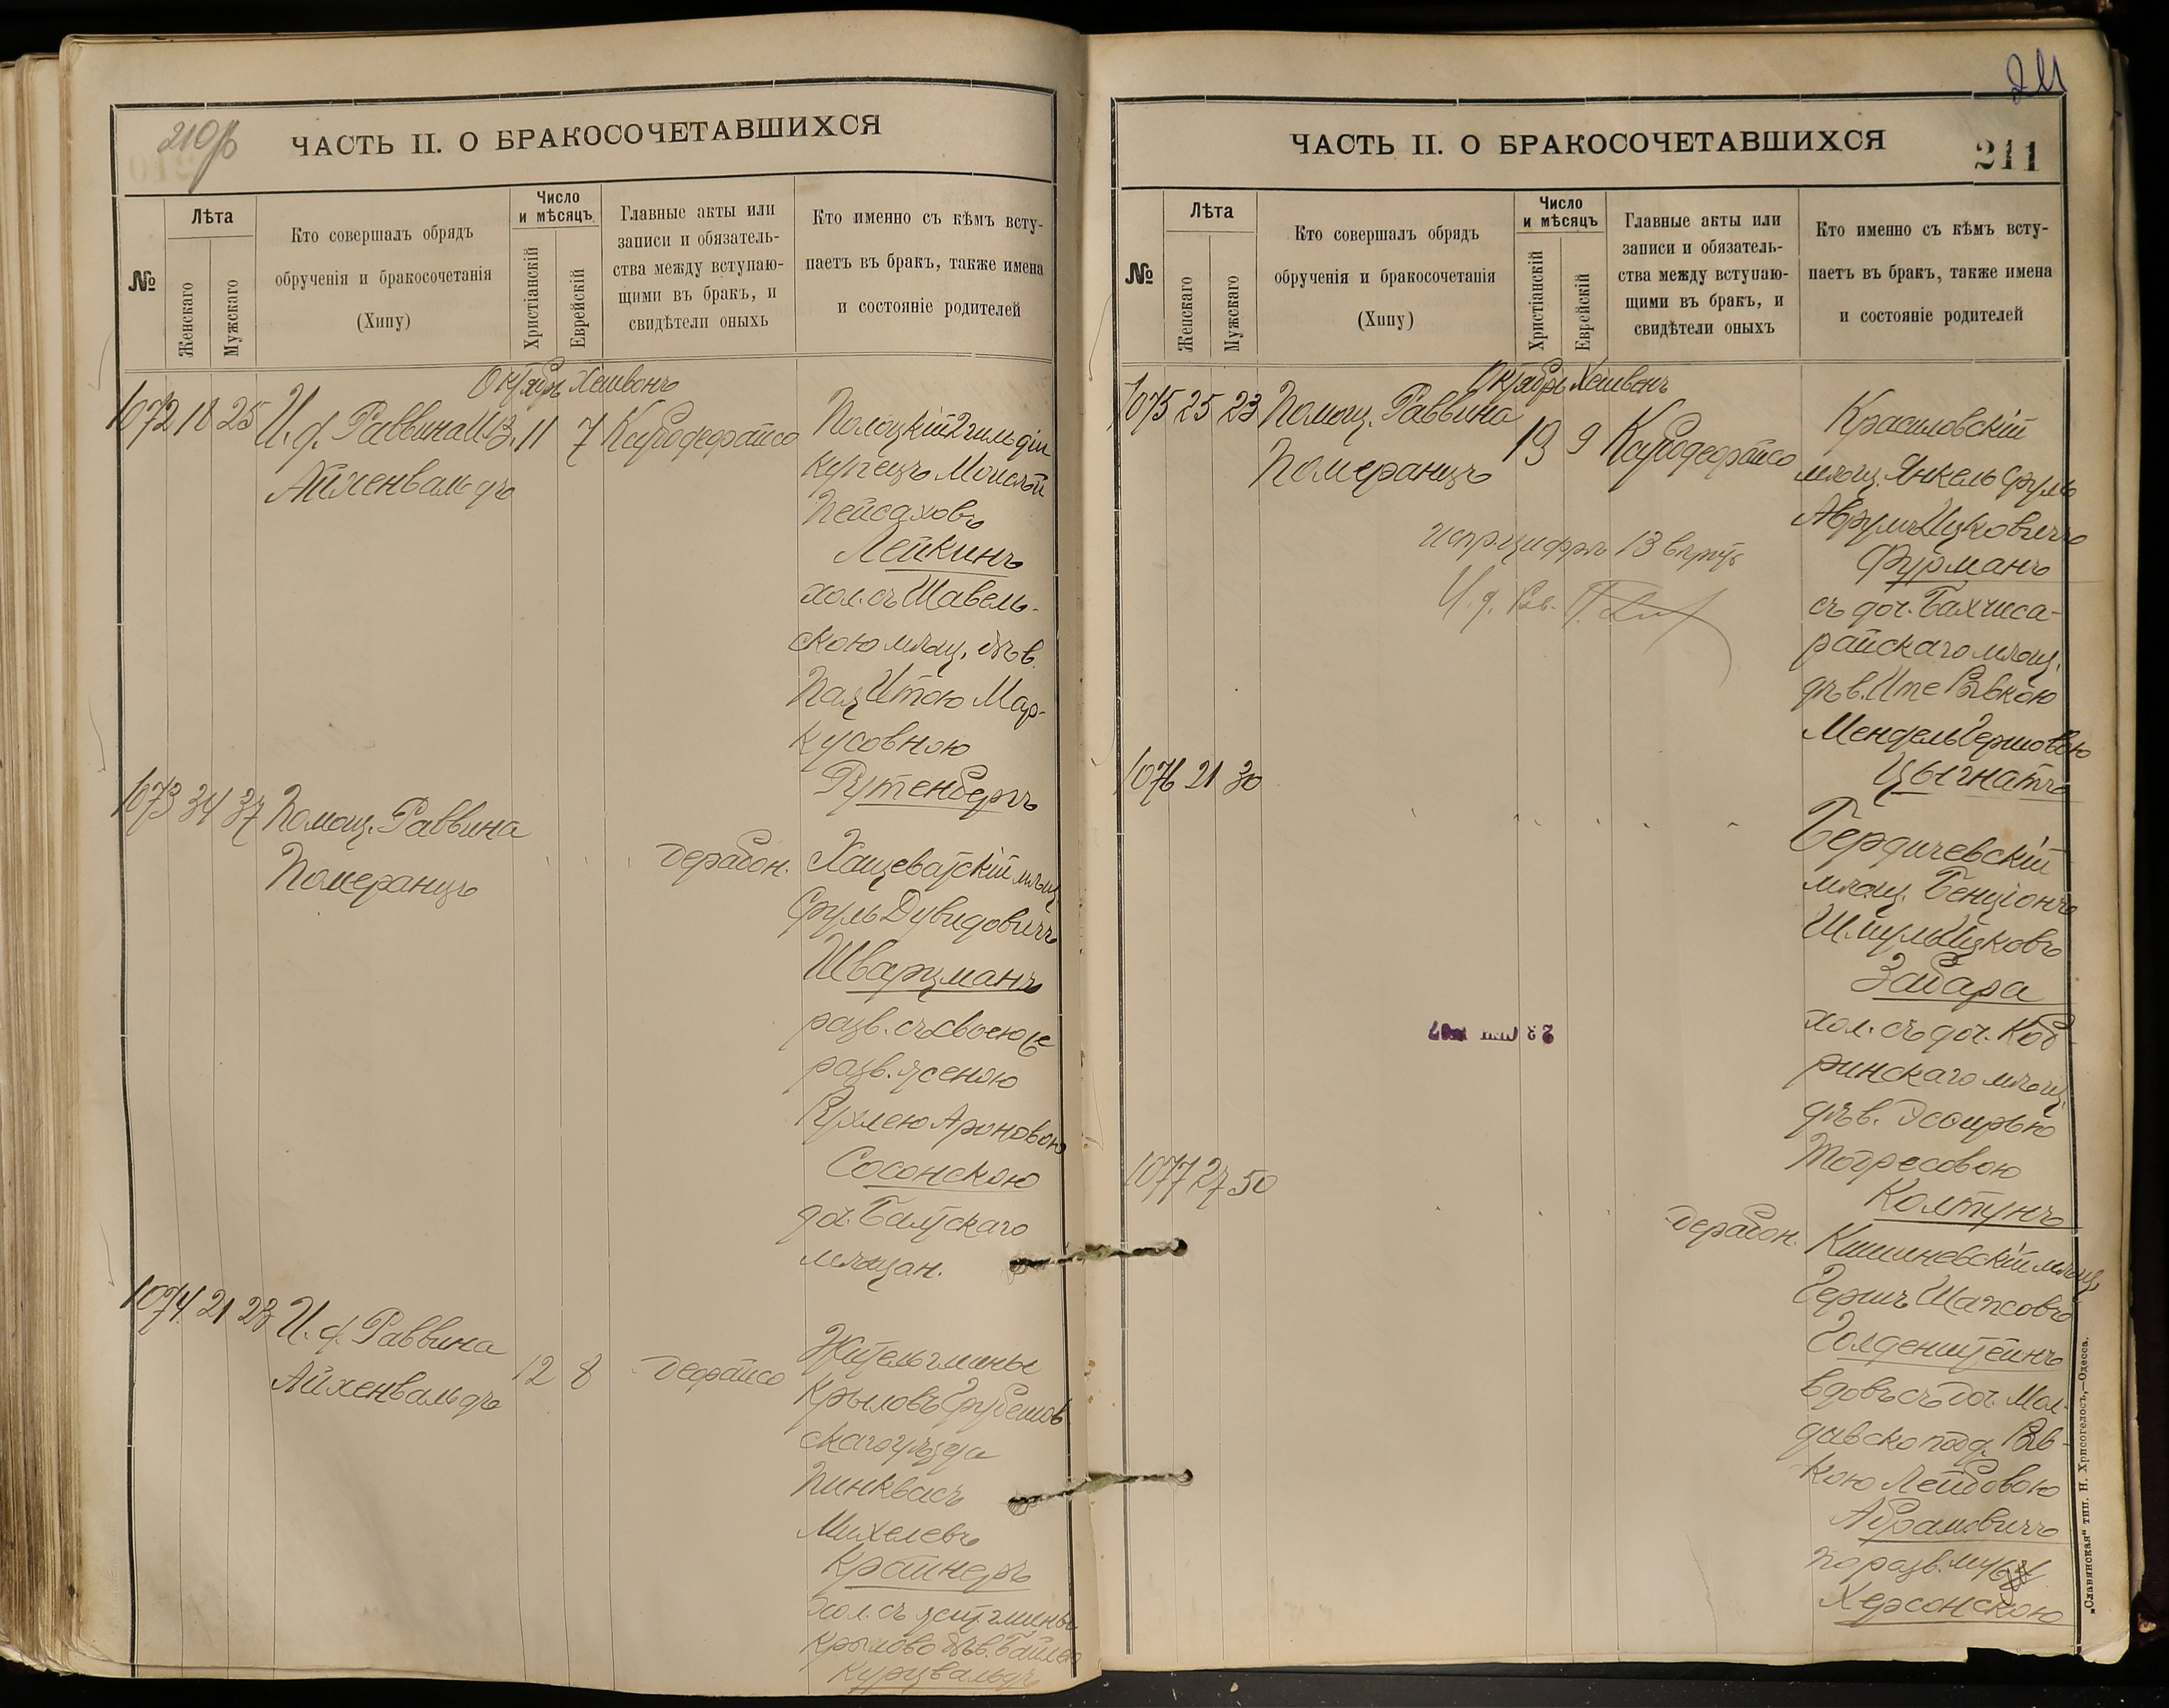 210об
ЧАСТЬ II. О БРАКОСОЧЕТАВШИХСЯ
№
Лѣта
Женскаго
Мужскаго
Кто совершалъ обрядъ
обрученія и бракосочетанія
(Хипу)
Число
и мѣсяцъ
Христіанскій
Еврейскій
Главные акты или
записи и обязатель-
ства между вступаю-
щими въ бракъ, и
свидѣтели оныхъ
Кто именно съ кѣмъ всту-
паетъ въ бракъ, также имена
и состояніе родителей
Октябрь Хешвонъ
1072 18 25 И. д. Раввина
Айхенвальдъ
11 7
Полоцкій 2 гильдіи
купецъ Моисей
Пейсаховъ
Лейкинъ
хол. съ Шавель-
скою мѣщ. дѣв.
Итою Мар-
кусовною
Рутенбергъ
1073 34 37 Помощ. Раввина
Померанцъ
Хащеватскій мѣщ.
Сруль Дувидовичъ
Шварцманъ
разв. съ своею же
разв. женою
Рухлею Ароновою
Сосонскою
доч. Балтскаго
мѣщан.
1074 21 23 И. д. Раввина
Айхенвальдъ
12 8
Житель гмины
Крыловъ Грубешов
скаго уѣзда
Пинквасъ
Михелевъ
Крайнеръ
хол. съ жит. гмины
Крылово дѣв. Байлею
Курцвальдъ
211
ЧАСТЬ II. О БРАКОСОЧЕТАВШИХСЯ
211
№
Лѣта
Женскаго
Мужскаго
Кто совершалъ обрядъ
обрученія и бракосочетанія
(Хипу)
Число
и мѣсяцъ
Христіанскій
Еврейскій
Главные акты или
записи и обязатель-
ства между вступаю-
щими въ бракъ, и
свидѣтели оныхъ
Кто именно съ кѣмъ всту-
паетъ въ бракъ, также имена
и состояніе родителей
Октябрь Хешвонъ
1075 25 23 Помощ. Раввина
Померанцъ
13 9
испр. цифрѣ 13 вѣрить
И. д. Рав.
Красиловскій
мѣщ. Янкель Сруль
Аврумъ Ицковичъ
Фурманъ
съ доч. Бахчиса-
райскаго мѣщ.
дѣв. Ите Ривкою
Мендель Гершовою
Цыгнатъ
1076 21 30
Бердичевскій
мѣщ. Бенціонъ
Шмуль Ицковъ
Забара
хол. съ доч. Коб
ринскаго мѣщ.
дѣв. Эсѳирью
Колтунъ
1077 27 50
Кишиневскій мѣщ.
Гершъ Шапсовъ
Голденштейнъ
вдовъ съ доч. Мол-
давско под. Рив-
кою Лейбовою
Абрамовичъ
по разв. мужу
Херсонскою
„Славянская“ тип. Н. Хрисогелосъ,—Одесса.